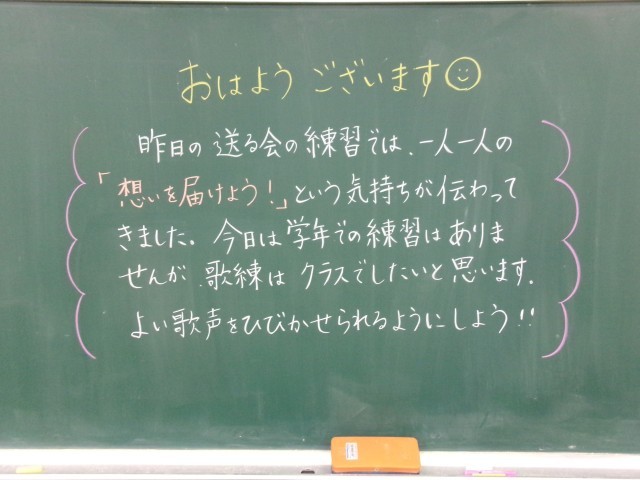 おはようございます
昨日の送る会の練習では、一人一人の
「想いを届けよう!」という気持ちが伝わって
きました。今日は学年での練習はありま
せんが、歌練はクラスでしたいと思います。
よい歌声をひびかせられるようにしよう!!